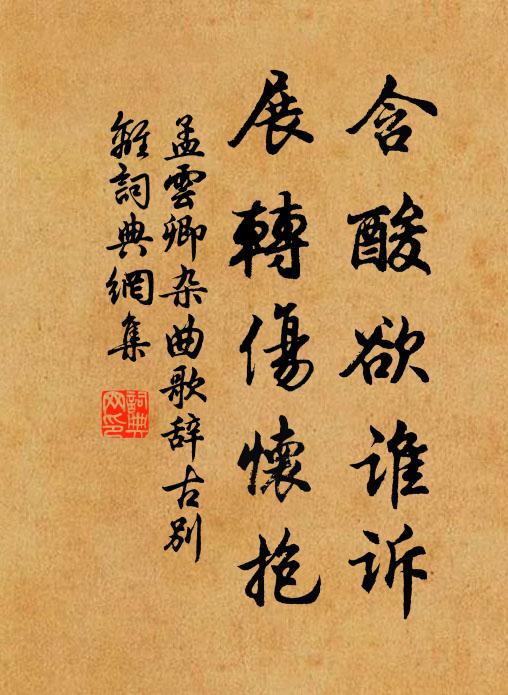 含酸欲谁訴
展轉傷懷抱
孟雲卿杂曲歌辞古别
離詞典網集
詞典
网印